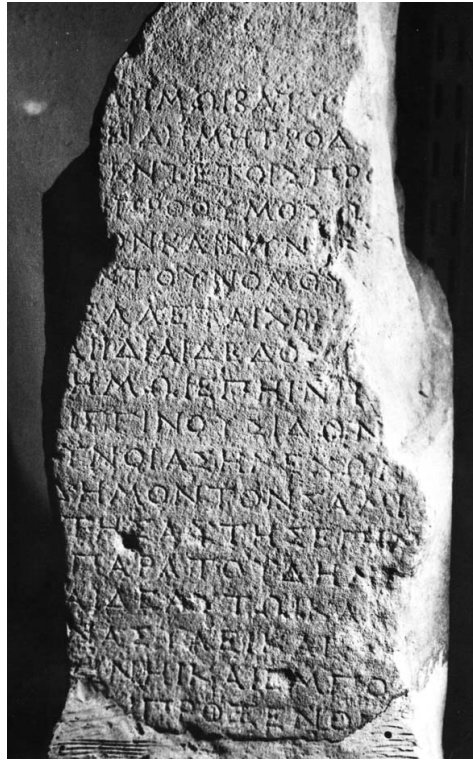 ΗΜΩΙΒΑΣ
ΙΔΗΜΗΤΡΟΔ
ΕΝΤΕΤΟΙΣΠΡΟ
ΠΡΟΘΥΜΟΣ
ΩΝΚΑΙΝΥΝ
ΤΟΥΝΟΜΟΥ
ΑΛΛΕΙΚΑΙΧΩΡΙ
ΔΙΑΙΔΕΔΟ
ΗΜΩΙΕΠΗΙΝ
ΓΙΝΟΥΣΙΔΩΝ
ΝΟΙΑΣΗΝΕΧΩ
ΔΗΜΟΝΤΟΝΣΑΜΙ
ΤΗΣΑΣΤΗΣΕΠΙΜ
ΠΑΡΑΤΟΥΔΗΜ
ΔΕΑΥΤΩΙΚΑ
ΑΣΙΛΕΙΚΑΙ
ΗΝΗΙΚΑΙΕΜΠΟ
ΠΡΟΞΕΝΟ